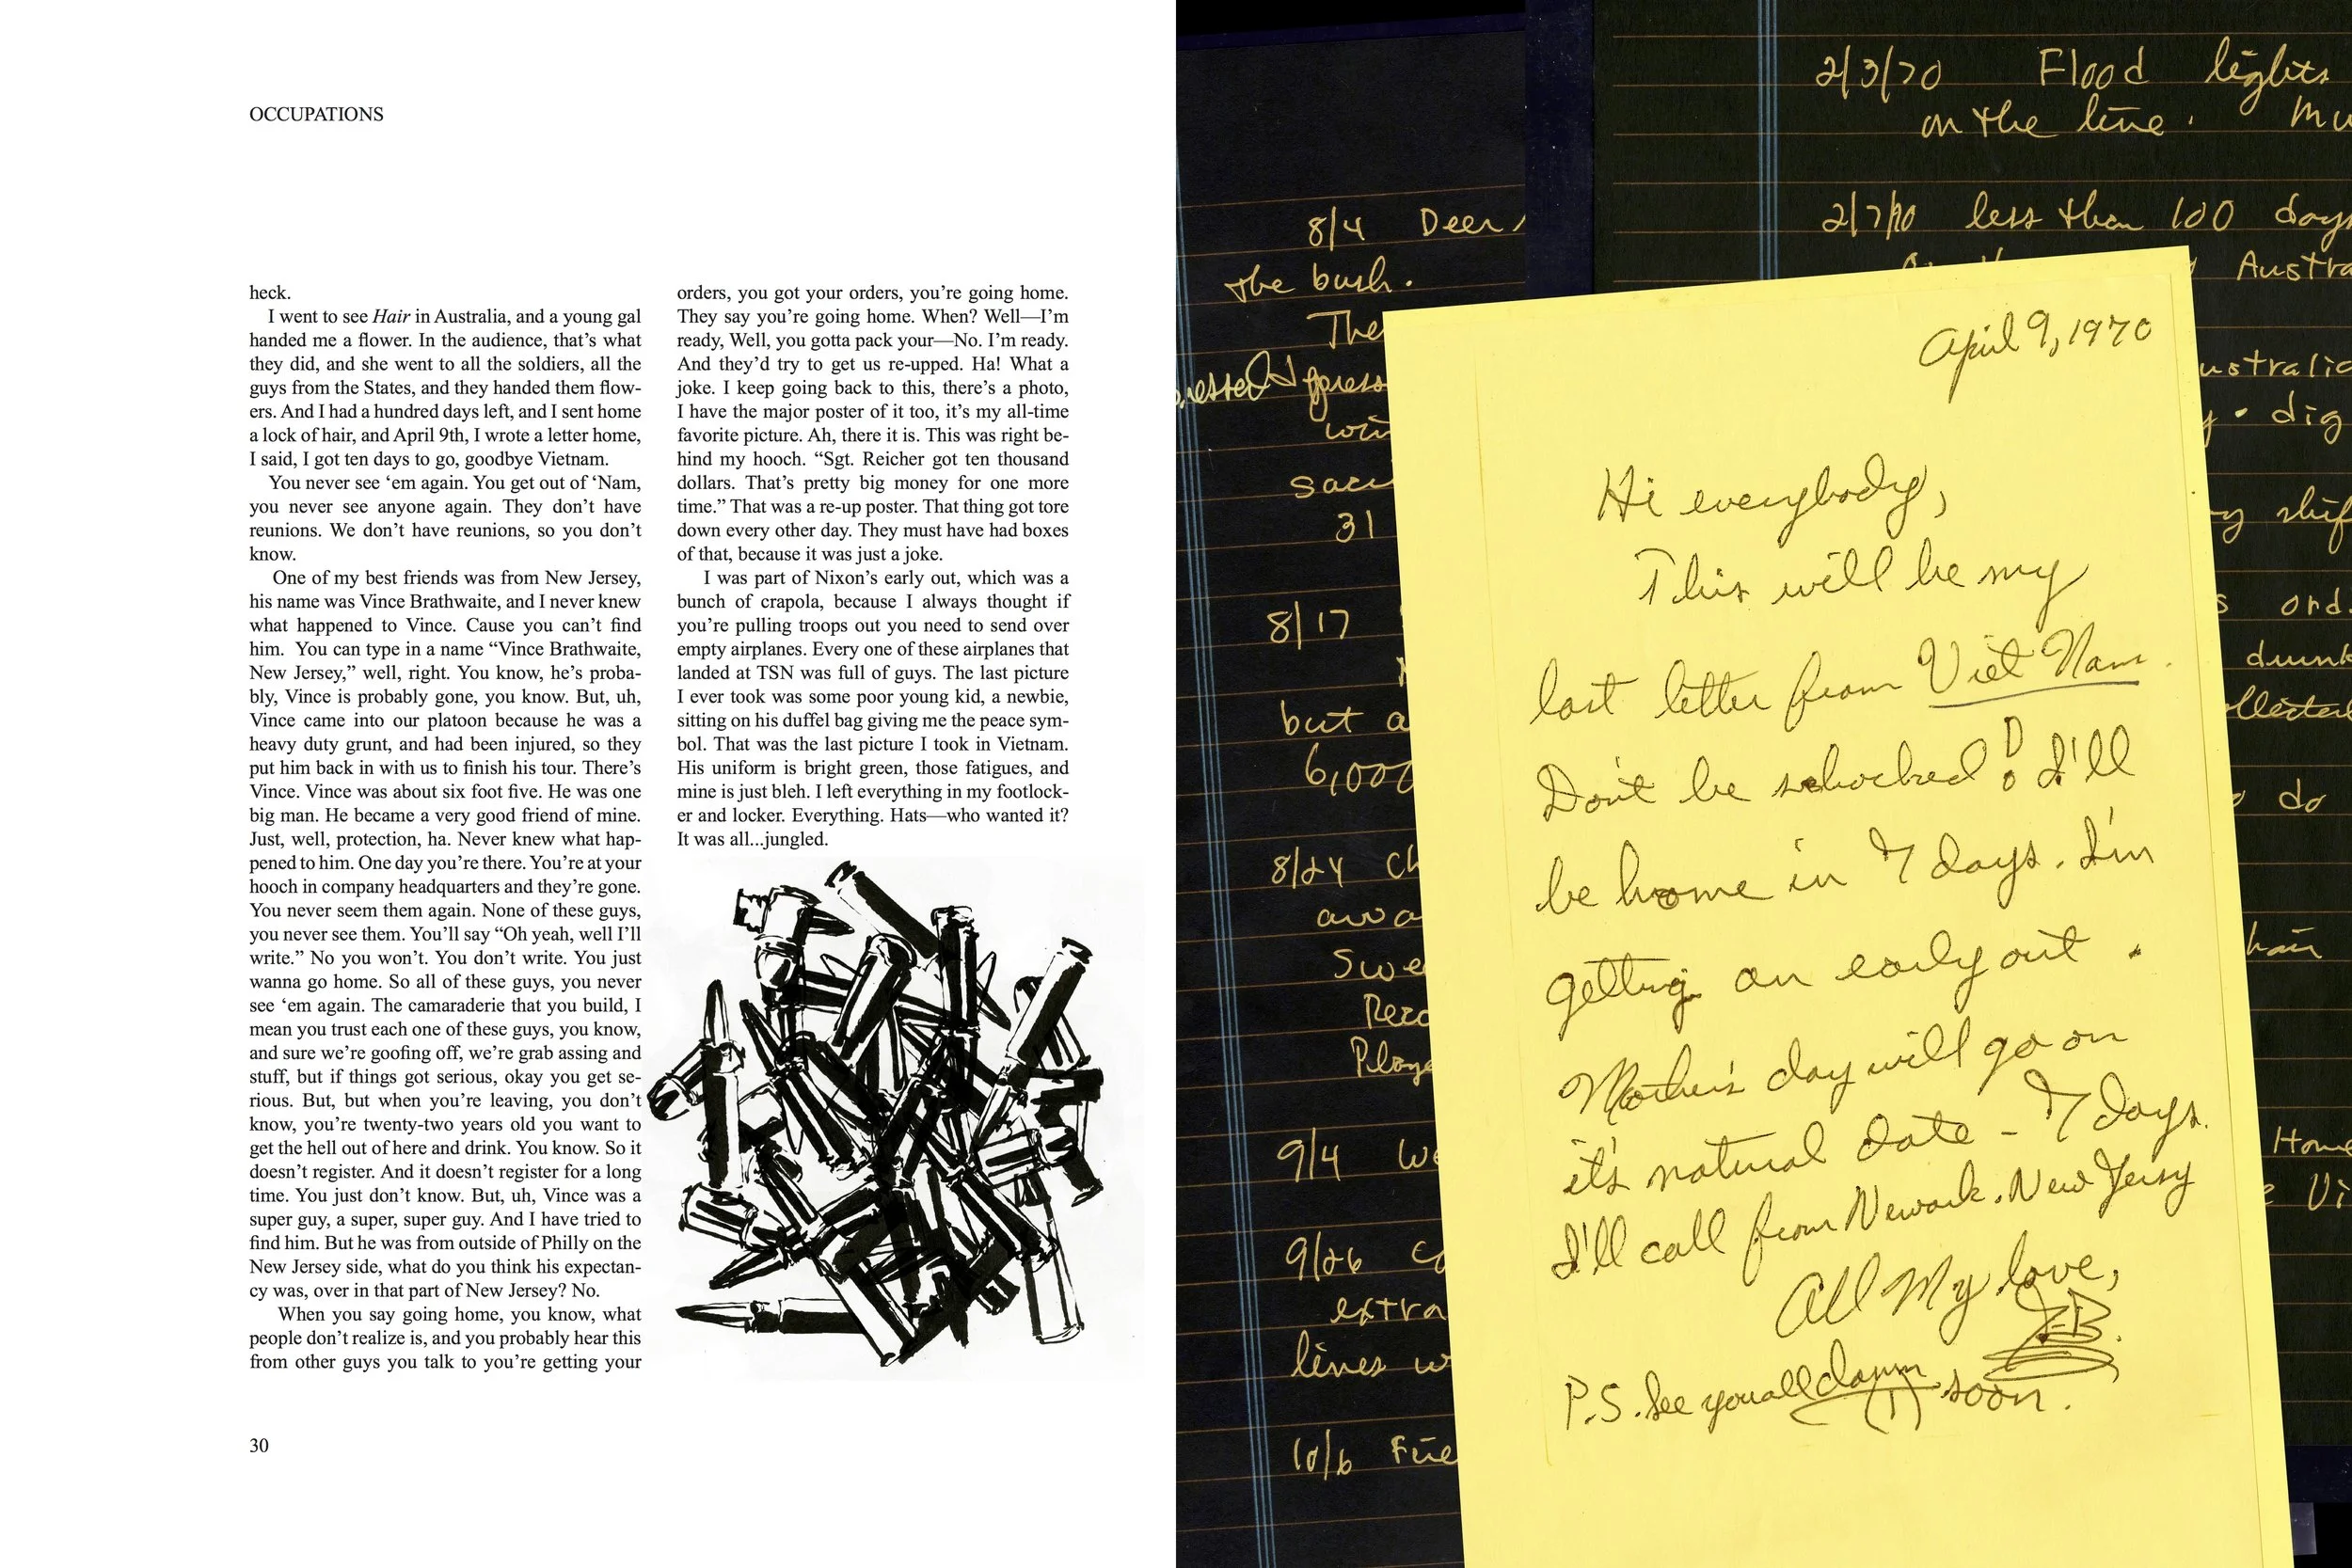 OCCUPATIONS
heck.
I went to see Hair in Australia, and a young gal
handed me a flower. In the audience, that’s what
they did, and she went to all the soldiers, all the
guys from the States, and they handed them flow-
ers. And I had a hundred days left, and I sent home
a lock of hair, and April 9th, I wrote a letter home,
I said, I got ten days to go, goodbye Vietnam.
You never see ‘em again. You get out of ‘Nam,
you never see anyone again. They don’t have
reunions. We don’t have reunions, so you don’t
know.
One of my best friends was from New Jersey,
his name was Vince Brathwaite, and I never knew
what happened to Vince. Cause you can’t find
him. You can type in a name “Vince Brathwaite,
New Jersey,” well, right. You know, he’s proba-
bly, Vince is probably gone, you know. But, uh,
Vince came into our platoon because he was a
heavy duty grunt, and had been injured, so they
put him back in with us to finish his tour. There’s
Vince. Vince was about six foot five. He was one
big man. He became a very good friend of mine.
Just, well, protection, ha. Never knew what hap-
pened to him. One day you’re there. You’re at your
hooch in company headquarters and they’re gone.
You never seem them again. None of these guys,
you never see them. You’ll say “Oh yeah, well I’ll
write.” No you won’t. You don’t write. You just
wanna go home. So all of these guys, you never
see ‘em again. The camaraderie that you build, I
mean you trust each one of these guys, you know,
and sure we’re goofing off, we’re grab assing and
stuff, but if things got serious, okay you get se-
rious. But, but when you’re leaving, you don’t
know, you’re twenty-two years old you want to
get the hell out of here and drink. You know. So it
doesn’t register. And it doesn’t register for a long
time. You just don’t know. But, uh, Vince was a
super guy, a super, super guy. And I have tried to
find him. But he was from outside of Philly on the
New Jersey side, what do you think his expectan-
cy was, over in that part of New Jersey? No.
When you say going home, you know, what
people don’t realize is, and you probably hear this
from other guys you talk to you’re getting your
orders, you got your orders, you’re going home.
They say you’re going home. When? Well—I’m
ready, Well, you gotta pack your—No. I’m ready.
And they’d try to get us re-upped. Ha! What a
joke. I keep going back to this, there’s a photo,
I have the major poster of it too, it’s my all-time
favorite picture. Ah, there it is. This was right be-
hind my hooch. “Sgt. Reicher got ten thousand
dollars. That’s pretty big money for one more
time.” That was a re-up poster. That thing got tore
down every other day. They must have had boxes
of that, because it was just a joke.
I was part of Nixon’s early out, which was a
bunch of crapola, because I always thought if
you’re pulling troops out you need to send over
empty airplanes. Every one of these airplanes that
landed at TSN was full of guys. The last picture
I ever took was some poor young kid, a newbie,
sitting on his duffel bag giving me the peace sym-
bol. That was the last picture I took in Vietnam.
His uniform is bright green, those fatigues, and
mine is just bleh. I left everything in my footlock-
er and locker. Everything. Hats—who wanted it?
It was all...jungled.
30
8/4 Deer
the bush.
The
31
8/17
but a
6,000
8/24 Ch
Swe
9/4 We
9/26
extra
lines w
10/6
2/3/70 Flood lights
on the line. Mu
2/7/70 less than 100 days
Austra
ustralia
dig
ord.
drunk
ollected
do
hair
Home
Vi
April 9, 1970
Hi everybody,
This will be my
last letter from Viet Nam.
Don't be schocked! I'll
be home in 7 days. I'm
getting an early out.
Mother's day will go on
it's natural date - 7 days.
I'll call from Newark. New Jersy
All My love,
P.S. See you all damn soon.